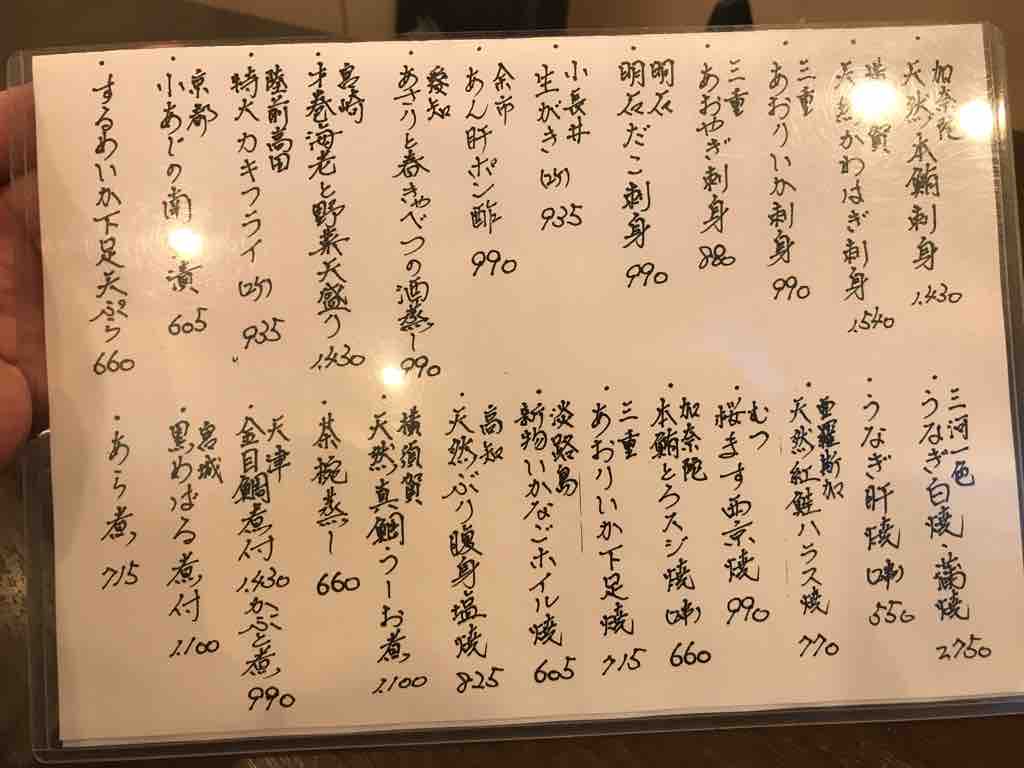 加奈陀
・天然本鮪刺身 1.430
横須賀
・天然かわはぎ刺身 1.540
三重
・あおりいか刺身 990
三重
・あおやぎ刺身 880
明石
・明石だこ刺身 990
小長井
・生がき(2ケ) 935
余市
・あん肝ポン酢 990
愛知
・あさりと春きゃべつの酒蒸し 990
宮崎
・才巻海老と野菜天盛り 1.430
陸前高田
・特大カキフライ(2ケ) 935
京都
・小あじの南蛮漬 605
・するめいか下足天ぷら 660
三河一色
・うなぎ白焼・蒲焼 2.750
・うなぎ肝焼(2串) 550
亜羅斯加
・天然紅鮭ハラス焼 770
むつ
・桜ます西京焼 990
加奈陀
・本鮪とろスジ焼(2串) 660
三重
・あおりいか下足焼 715
淡路島
・新物いかなごホイル焼 605
高知
・天然ぶり腹身塩焼 825
横須賀
・天然真鯛うしお煮 1.100
・茶碗蒸し 660
天津
・金目鯛煮付 1.430 かぶと煮 990
宮城
・黒めばる煮付 1.100
・あら煮 715